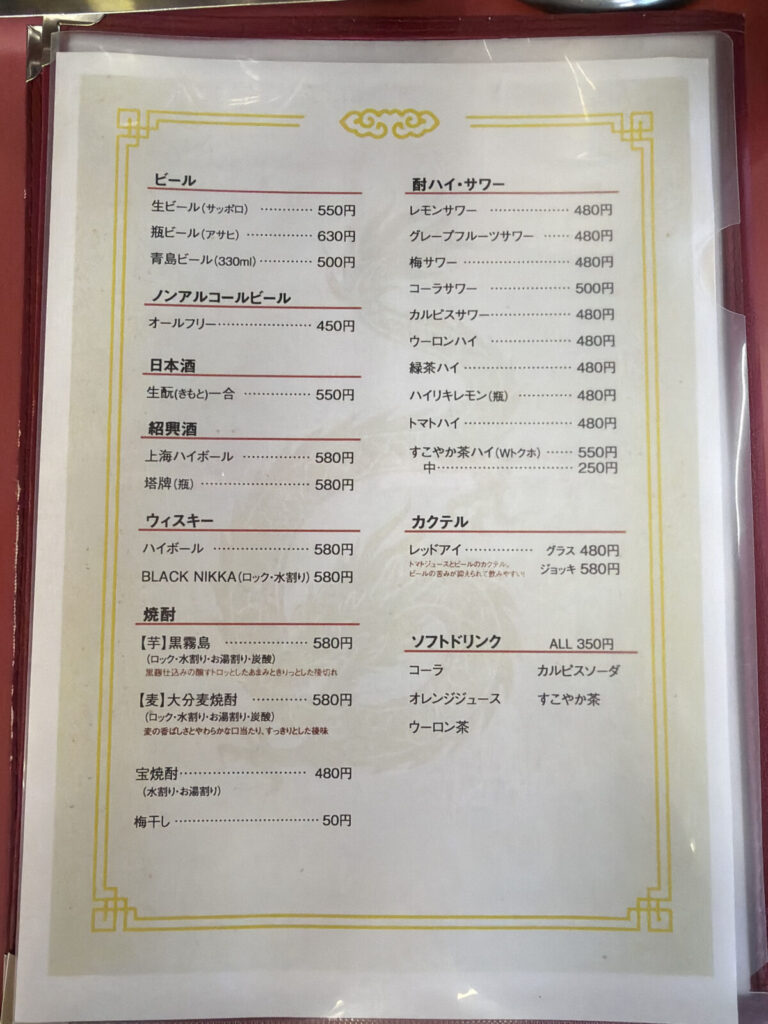 ビール
生ビール(サッポロ) ············ 550円
瓶ビール(アサヒ) ··············· 630円
青島ビール(330ml)············ 500円
ノンアルコールビール
オールフリー····················· 450円
日本酒
生酛(きもと)一合 ··············· 550円
紹興酒
上海ハイボール ················ 580円
塔牌(瓶) ························· 580円
ウィスキー
ハイボール ······················ 580円
BLACK NIKKA(ロック・水割り) 580円
焼酎
【芋】黒霧島 ··················· 580円
(ロック・水割り・お湯割り・炭酸)
黒麹仕込みの醸すトロッとしたあまみときりっとした後切れ
【麦】大分麦焼酎 ············· 580円
(ロック・水割り・お湯割り・炭酸)
麦の香ばしさとやわらかな口当たり、すっきりとした後味
宝焼酎····························· 480円
(水割り・お湯割り)
梅干し ································· 50円
酎ハイ・サワー
レモンサワー ·················· 480円
グレープフルーツサワー ······ 480円
梅サワー ························ 480円
コーラサワー ·················· 500円
カルピスサワー·················· 480円
ウーロンハイ ·················· 480円
緑茶ハイ ························ 480円
ハイリキレモン(瓶) ············ 480円
トマトハイ ······················ 480円
すこやか茶ハイ(Wトクホ) ······ 550円
中································ 250円
カクテル
レッドアイ ················ グラス 480円
トマトジュースとビールのカクテル。
ビールの苦みが抑えられて飲みやすい! ジョッキ 580円
ソフトドリンク ALL 350円
コーラ カルピスソーダ
オレンジジュース すこやか茶
ウーロン茶